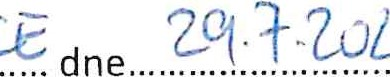 CE dne 29.7.202